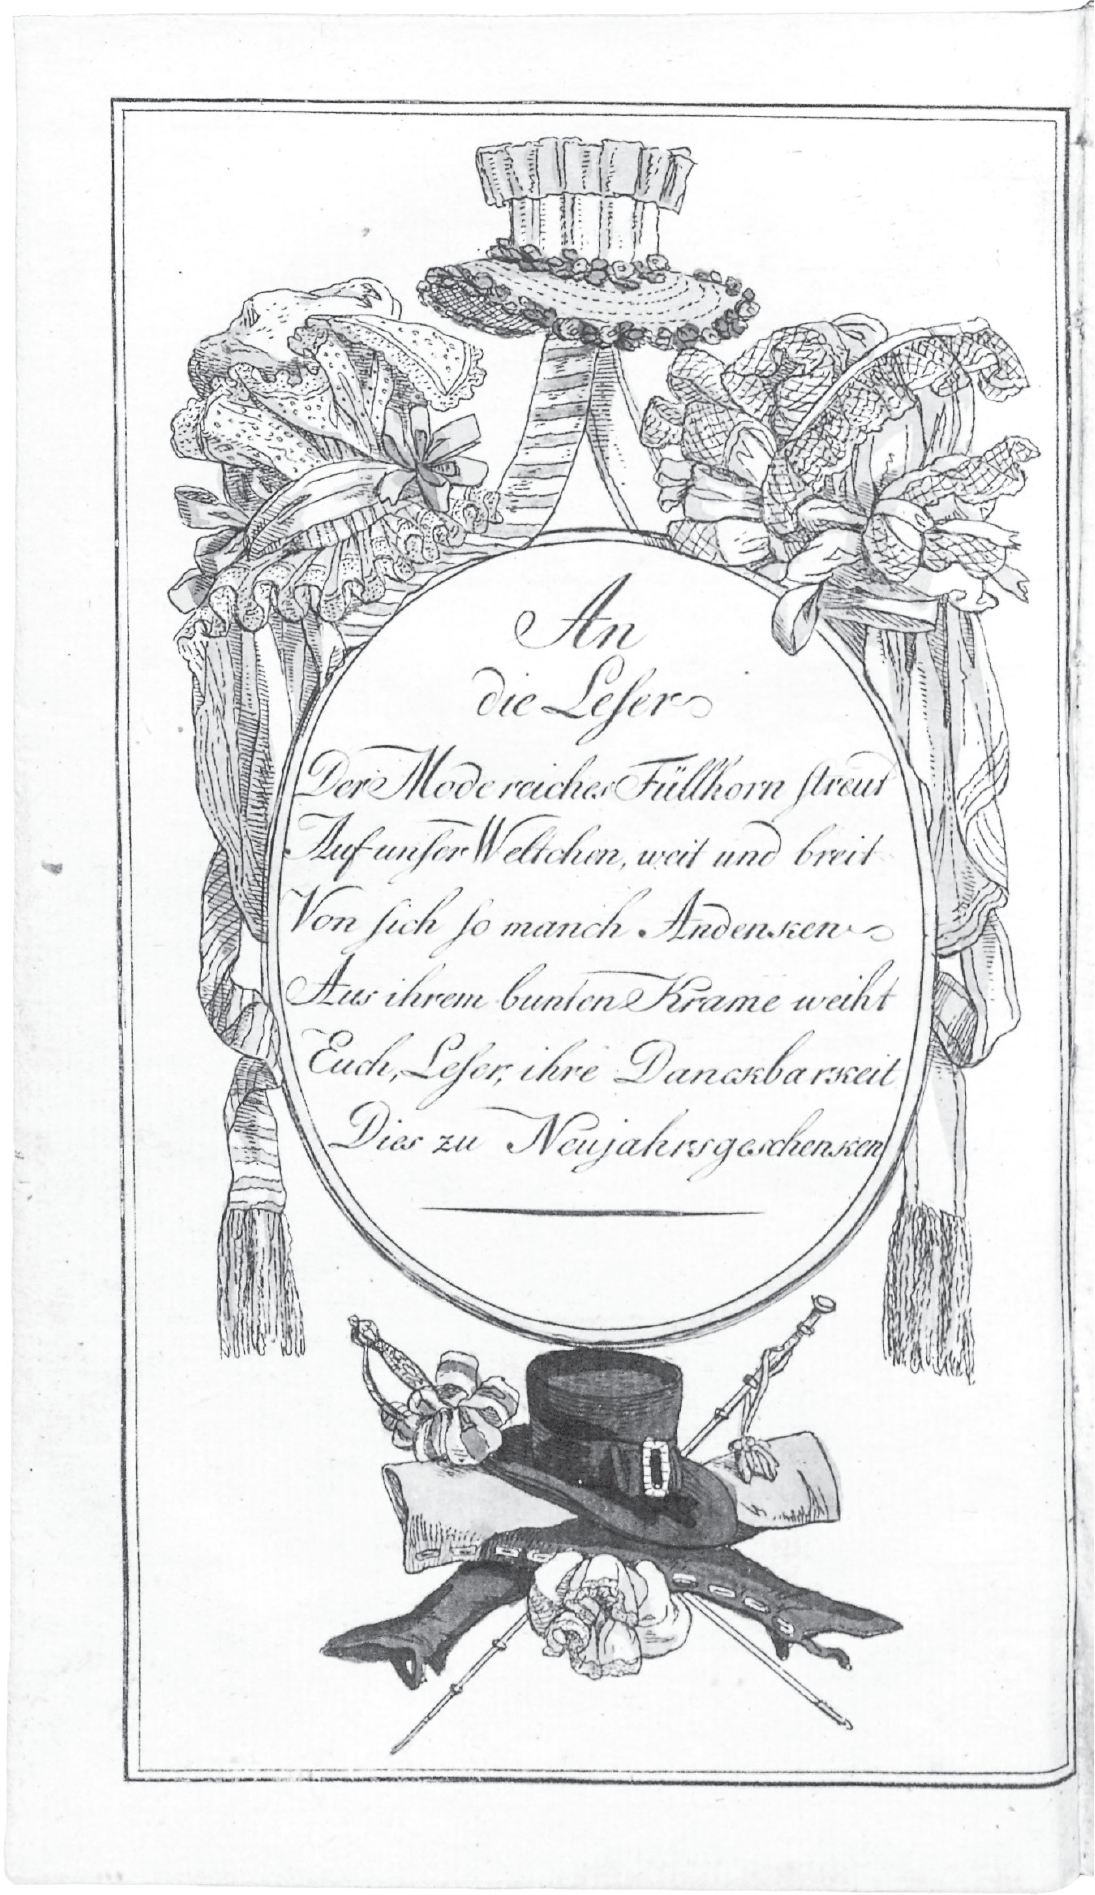 An
die Leſer
Der Mode reiches Füllhorn ſtreut
Auf unſer Weltchen, weit und breit
Von ſich ſo manch Andenken
Aus ihrem bunten Krame weiht
Euch, Leſer, ihre Danckbarkeit
Dies zu Neujahrsgeschenken